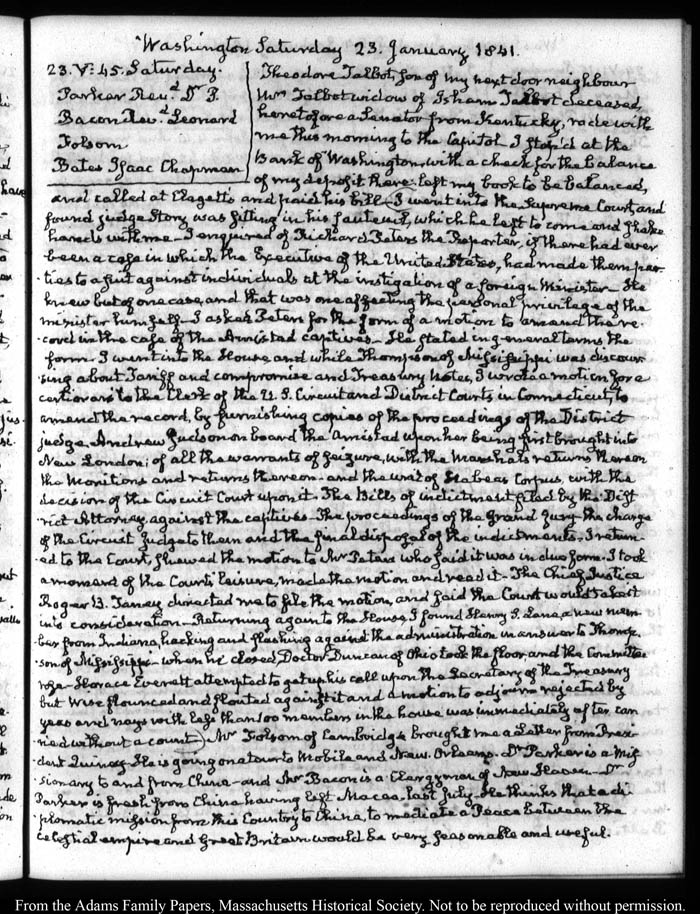 Washington Saturday 23. January 1841.
23. V: 45. Saturday.
Parker Rev.d Dr P.
Bacon Rev.d Leonard
Folsom
Bates Isaac Chapman
Theodore Talbot, son of my next door neighbour
Mrs Talbot widow of Isham Talbot deceased,
heretofore a Senator from Kentucky, rode with
me this morning to the Capitol I stop'd at the
Bank of Washington, with a check for the balance
of my deposit there. left my book to be balanced,
and called at Clagett's and paid his bill— I went into the Supreme Court, and
found judge Story was sitting in his fauteuil, which he left to come and shake
hands with me— I enquired of Richard Peters the Reporter, if there had ever
been a case in which the Executive of the United States, had made them par-
ties to a suit against individuals at the instigation of a foreign Minister— He
knew but of one case, and that was one affecting the personal privilege of the
minister himself— I asked Peters for the form of a motion to amend the re-
cord in the case of the Amistad captives— He stated in general terms the
form— I went into the House, and while Thompson of Mississippi was discour-
sing about Tariff and compromise and Treasury Notes, I wrote a motion for a
certiorari to the Clerk of the U.S. Circuit and District Courts in Connecticut, to
amend the record, by furnishing copies of the proceedings of the District
judge, Andrew Judson on board the Amistad upon her being first brought into
New London; of all the warrants of seizure, with the Marshal's returns thereon
the Monitions and returns thereon— and the writ of Habeas Corpus, with the
decision of the Circuit Court upon it. The Bills of indictment filed by the Dist-
rict Attorney against the captives— The proceedings of the Grand Jury— the charge
of the Circuit Judge to them and the final disposal of the indictments— I return-
ed to the Court, shewed the motion to Mr Peters who said it was in due form. I took
a moment of the Court's leisure, made the motion and read it— The Chief Justice
Roger B. Taney directed me to file the motion, and said the Court would take it
into consideration— Returning again to the House, I found Henry S. Lane, a new mem-
ber from Indiana, hacking and slashing against the administration in answer to Thomp-
son of Mississippi— when he closed Doctor Duncan of Ohio took the floor, and the Committee
rose— Horace Everett attempted to get up his call upon the Secretary of the Treasury
but Wise flounced and flouted against it and a motion to adjourn rejected by
yeas and nays with less than 100 members in the house was immediately after car-
ried without a count) Mr Folsom of Cambridge brought me a Letter from Presi-
dent Quincy. He is going on a tour to Mobile and New Orleans. Dr Parker is a Mis-
sionary to and from China— and Mr Bacon is a Clergyman of New Haven— Dr
Parker is fresh from China having left Macao last July. He thinks that a di-
plomatic mission from this Country to China, to mediate a Peace between the
celestial empire and Great Britain would be very seasonable and useful.
From the Adams Family Papers, Massachusetts Historical Society. Not to be reproduced without permission.